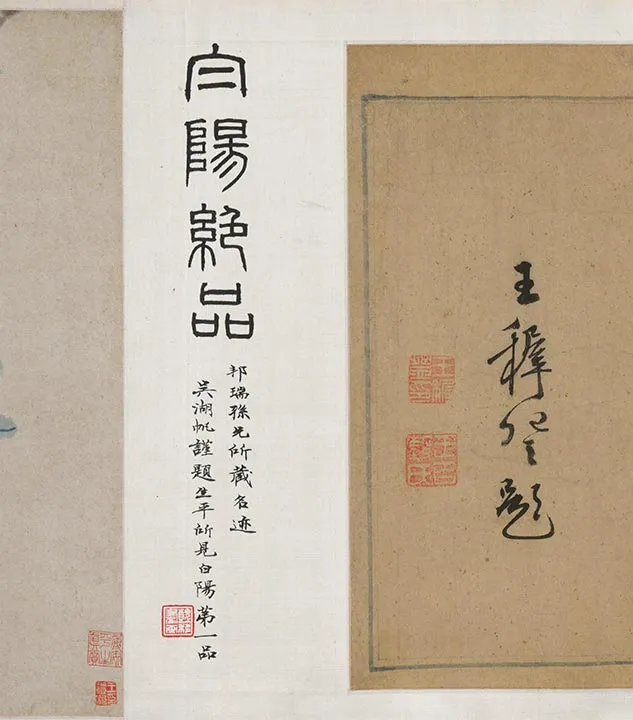 王穉登題
白陽絕品
邦瑞孫兄所藏名迹
吳湖帆謹題生平所見白陽第一品